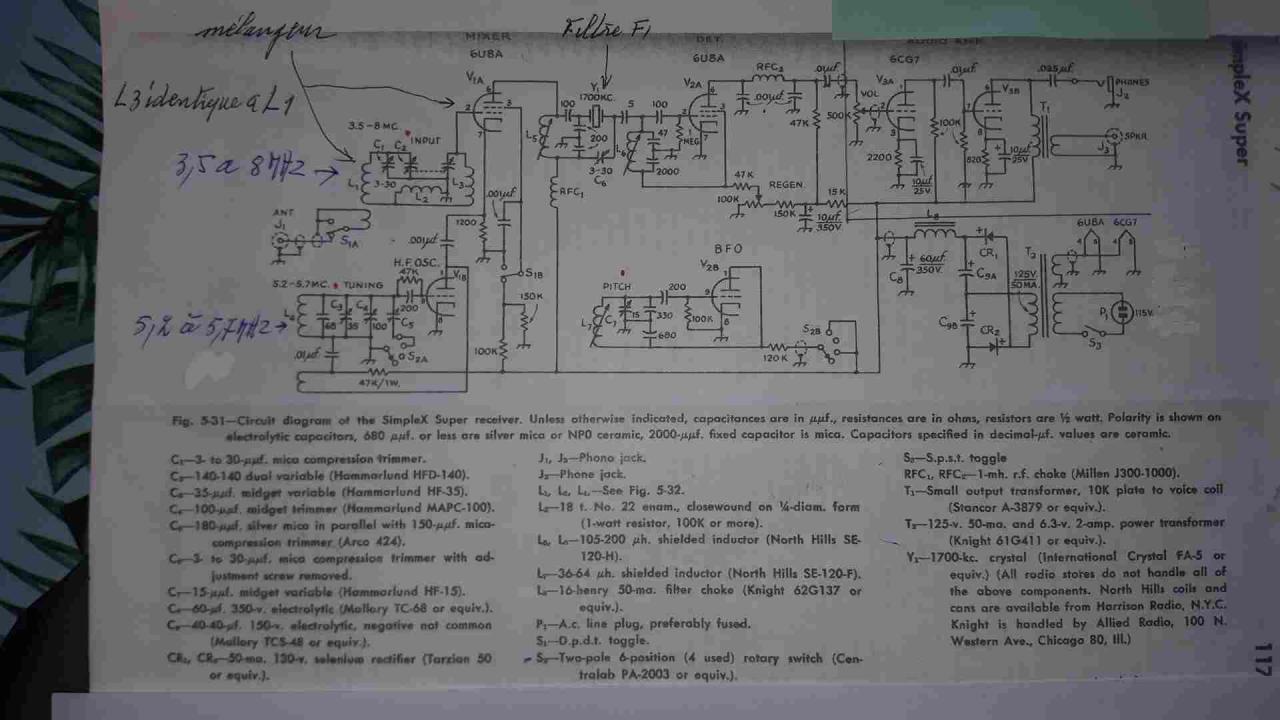 mélangeur
Filtre F1
L3 identique à L1
3,5 à 8 MHz →
5,2 à 5,7 MHz →
SimpleX Super
MIXER
6U8A
V1A
DET.
6U8A
V2A
AUDIO AMP.
6CG7
V3A
V3B
RFC2
.01μf
.001μf
.01μf
.025μf
PHONES
J2
SPKR.
J3
T1
VOL
500K
47K
100K
2200
820
10μf
25V.
10μf
25V.
Y1
1700KC.
100
5
100
200
47
2000
1 MEG.
3-30
C6
L5
L6
RFC1
3.5-8MC.
INPUT
C1
C2
3-30
L1
L2
L3
ANT
J1
S1A
1200
.001μf
.001μf
H.F. OSC.
47K
V1B
200
S1B
150K
100K
5.2-5.7MC. TUNING
L4
C3
C4
C5
68
35
100
S2A
.01μf
47K/1W.
47K
REGEN.
100K
150K
15K
10μf
350V.
BFO
V2B
PITCH
L7
C7
15
330
680
200
100K
120K
S2B
L8
60μf
350V.
C8
C9A
C9B
CR1
CR2
125V.
50MA.
T2
6U8A 6CG7
P1
115V.
S3
Fig. 5-31—Circuit diagram of the SimpleX Super receiver. Unless otherwise indicated, capacitances are in μμf., resistances are in ohms, resistors are ½ watt. Polarity is shown on
electrolytic capacitors, 680 μμf. or less are silver mica or NP0 ceramic, 2000-μμf. fixed capacitor is mica. Capacitors specified in decimal-μf. values are ceramic.
C1—3- to 30-μμf. mica compression trimmer.
C2—140-140 dual variable (Hammarlund HFD-140).
C3—35-μμf. midget variable (Hammarlund HF-35).
C4—100-μμf. midget trimmer (Hammarlund MAPC-100).
C5—180-μμf. silver mica in parallel with 150-μμf. mica-
compression trimmer (Arco 424).
C6—3- to 30-μμf. mica compression trimmer with ad-
justment screw removed.
C7—15-μμf. midget variable (Hammarlund HF-15).
C8—60-μf. 350-v. electrolytic (Mallory TC-68 or equiv.).
C9—40-40-μf. 150-v. electrolytic, negative not common
(Mallory TCS-48 or equiv.).
CR1, CR2—50-ma. 130-v. selenium rectifier (Tarzian 50
or equiv.).
J1, J3—Phono jack.
J2—Phone jack.
L1, L3, L4—See Fig. 5-32.
L2—18 t. No. 22 enam., closewound on ¼-diam. form
(1-watt resistor, 100K or more).
L5, L6—105-200 μh. shielded inductor (North Hills SE-
120-H).
L7—36-64 μh. shielded inductor (North Hills SE-120-F).
L8—16-henry 50-ma. filter choke (Knight 62G137 or
equiv.).
P1—A.c. line plug, preferably fused.
S1—D.p.d.t. toggle.
S2—Two-pole 6-position (4 used) rotary switch (Cen-
tralab PA-2003 or equiv.).
S3—S.p.s.t. toggle
RFC1, RFC2—1-mh. r.f. choke (Millen J300-1000).
T1—Small output transformer, 10K plate to voice coil
(Stancor A-3879 or equiv.).
T2—125-v. 50-ma. and 6.3-v. 2-amp. power transformer
(Knight 61G411 or equiv.).
Y1—1700-kc. crystal (International Crystal FA-5 or
equiv.) (All radio stores do not handle all of
the above components. North Hills coils and
cans are available from Harrison Radio, N.Y.C.
Knight is handled by Allied Radio, 100 N.
Western Ave., Chicago 80, Ill.)
117